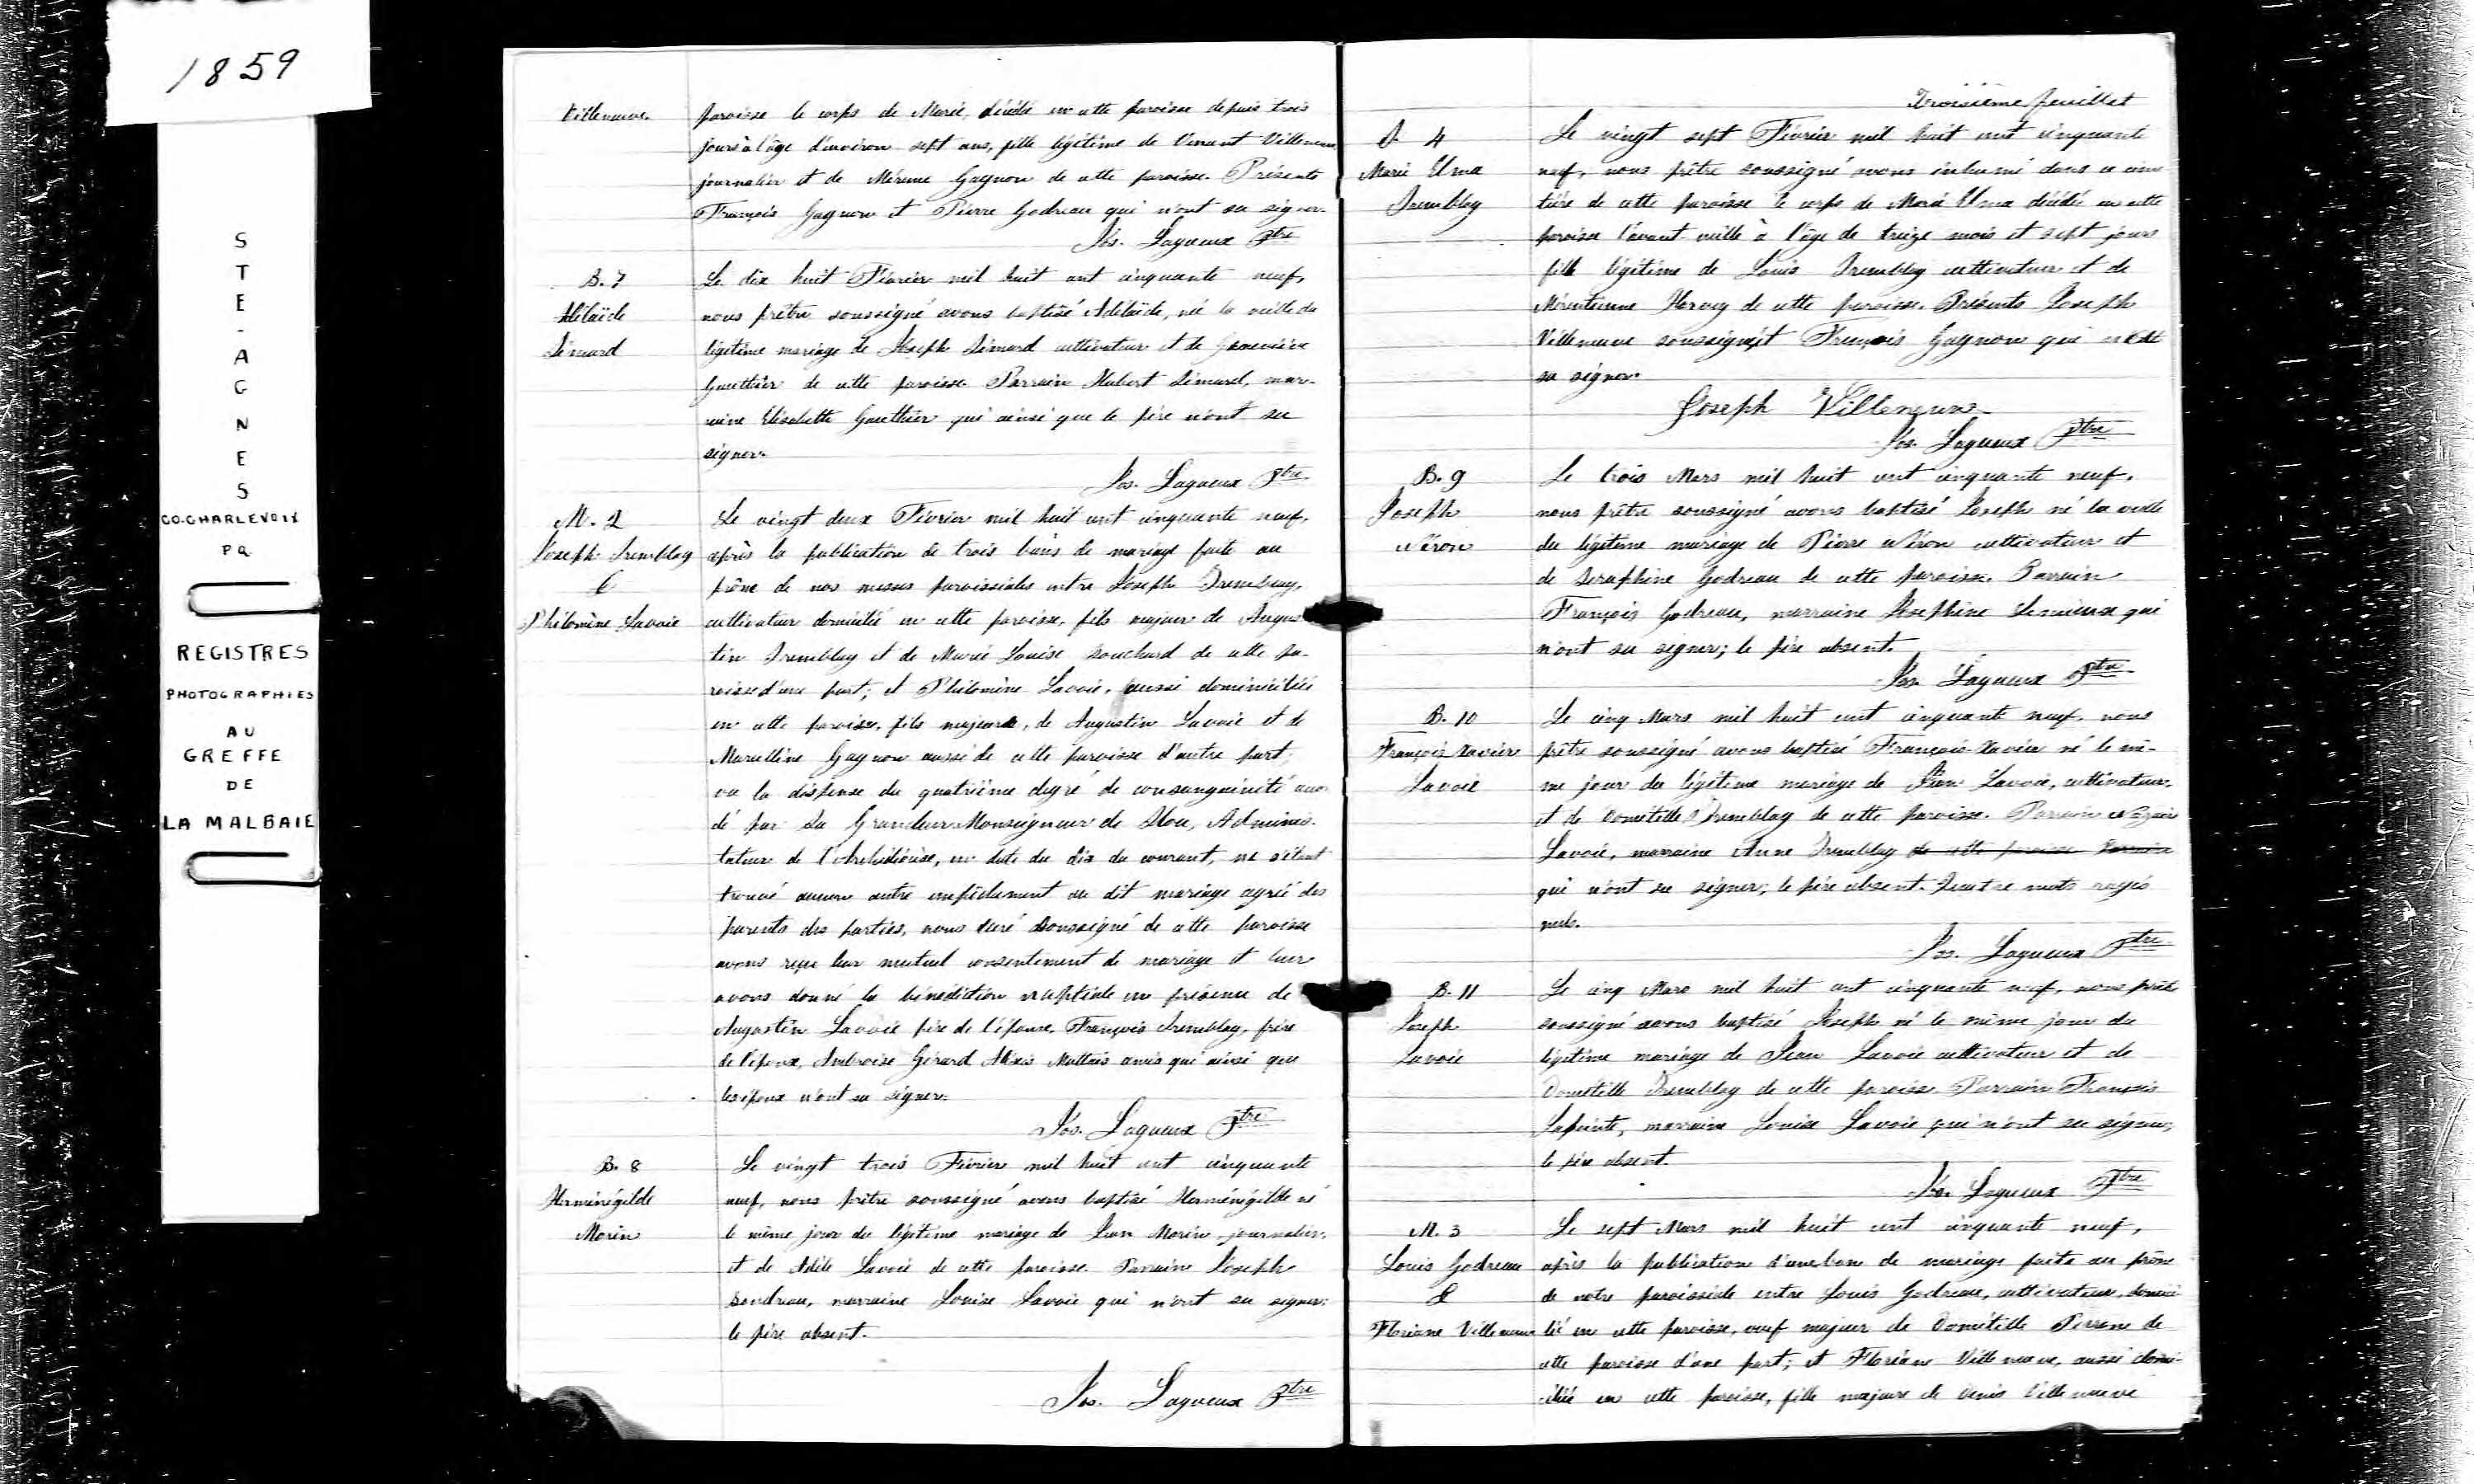 1859
STE-AGNES
CO. CHARLEVOIX
PQ
REGISTRES
PHOTOGRAPHIES
AU
GREFFE
DE
LA MALBAIE
Villeneuve.
paroisse le corps de Marie, décédée en cette paroisse depuis trois
jours à l'âge d'environ sept ans, fille légitime de Vincent Villeneuve
journalier et de Gagnon de cette paroisse. Présents
François Gagnon et Pierre Godreau qui n'ont su signer.
Jos. Lagueux Ptre
B. 7
Adélaïde
Simard
Le dix huit Février mil huit cent cinquante neuf,
nous prêtre soussigné avons baptisé Adélaïde, née la veille du
légitime mariage de Joseph Simard cultivateur et de Genevieve
Gauthier de cette paroisse. Parrain Hubert Simard, mar-
raine Elisabeth Gauthier qui ainsi que le père n'ont su
signer.
Jos. Lagueux Ptre
M. 2
Joseph Tremblay
&
Philomène Lavoie
Le vingt deux Février mil huit cent cinquante neuf,
après la publication de trois bans de mariage faite au
prône de nos messes paroissiales entre Joseph Tremblay,
cultivateur domicilié en cette paroisse, fils majeur de Augus
tin Tremblay et de Marie Louise Bouchard de cette pa-
roisse d'une part; et Philomène Lavoie, aussi dominiciliée
en cette paroisse, fille majeure, de Augustin Lavoie et de
Marcelline Gagnon aussi de cette paroisse d'autre part;
vu la dispense du quatrième degré de consanguinité accor
dé par Sa Grandeur Monseigneur de Tloa, Adminis-
trateur de l'Archidiocèse, en date du dix du courant, ne s'étant
trouvé aucun autre empêchement au dit mariage agréé des
parents des parties, nous curé soussigné de cette paroisse
avons reçu leur mutuel consentement de mariage et leur
avons donné la bénédiction nuptiale en présence de
Augustin Lavoie père de l'épouse, François Tremblay, frère
de l'époux, Ambroise Gérard Alexis Maltais amis qui ainsi que
les époux n'ont su signer.
Jos. Lagueux Ptre
B. 8
Herménégilde
Morin
Le vingt trois Février mil huit cent cinquante
neuf, nous prêtre soussigné avons baptisé Herménégilde né
le même jour du légitime mariage de Jean Morin journalier,
et de Adèle Lavoie de cette paroisse. Parrain Joseph
Boudreau, marraine Louise Lavoie qui n'ont su signer;
le père absent.
Jos. Lagueux Ptre
Troisième feuillet
S 4
Marie Elma
Tremblay
Le vingt sept Février mil huit cent cinquante
neuf, nous prêtre soussigné avons inhumé dans ce cime
tière de cette paroisse le corps de Marie Elma décédée en cette
paroisse l'avant-veille à l'âge de treize mois et sept jours
fille légitime de Louis Tremblay cultivateur et de
Harvey de cette paroisse. Présents Joseph
Villeneuve soussigné, et François Gagnon qui
su signer.
Joseph Villeneuve
Jos. Lagueux Ptre
B. 9
Joseph
Néron
Le trois Mars mil huit cent cinquante neuf,
nous prêtre soussigné avons baptisé Joseph né la veille
du légitime mariage de Pierre Néron cultivateur et
de Seraphine Godreau de cette paroisse. Parrain
François Godreau, marraine Josephine Lemieux qui
n'ont su signer; le père absent.
Jos. Lagueux Ptre
B. 10
François Xavier
Lavoie
Le cinq Mars mil huit cent cinquante neuf, nous
prêtre soussigné avons baptisé François-Xavier né le mê-
me jour du légitime mariage de Jean Lavoie, cultivateur,
et de Dometilde Tremblay de cette paroisse. Parrain Nazaire
Lavoie, marraine Anne Tremblay de cette paroisse Parrain
qui n'ont su signer; le père absent. Quatre mots rayés
nuls.
Jos. Lagueux Ptre
B. 11
Joseph
Lavoie
Le cinq Mars mil huit cent cinquante neuf, nous prêtre
soussigné avons baptisé Joseph né le même jour du
légitime mariage de Jean Lavoie cultivateur et de
Dometille Tremblay de cette paroisse. Parrain François
Lapointe, marraine Louise Lavoie qui n'ont su signer;
le père absent.
Jos. Lagueux Ptre
M. 3
Louis Godreau
&
Floriane Villeneuve
Le sept Mars mil huit cent cinquante neuf,
après la publication d'un ban de mariage faite au prône
de notre paroissiale entre Louis Godreau, cultivateur, domici-
lié en cette paroisse, veuf majeur de Dométille Perron de
cette paroisse d'une part; et Floriane Villeneuve, aussi domi-
ciliée en cette paroisse, fille majeure de Denis Villeneuve